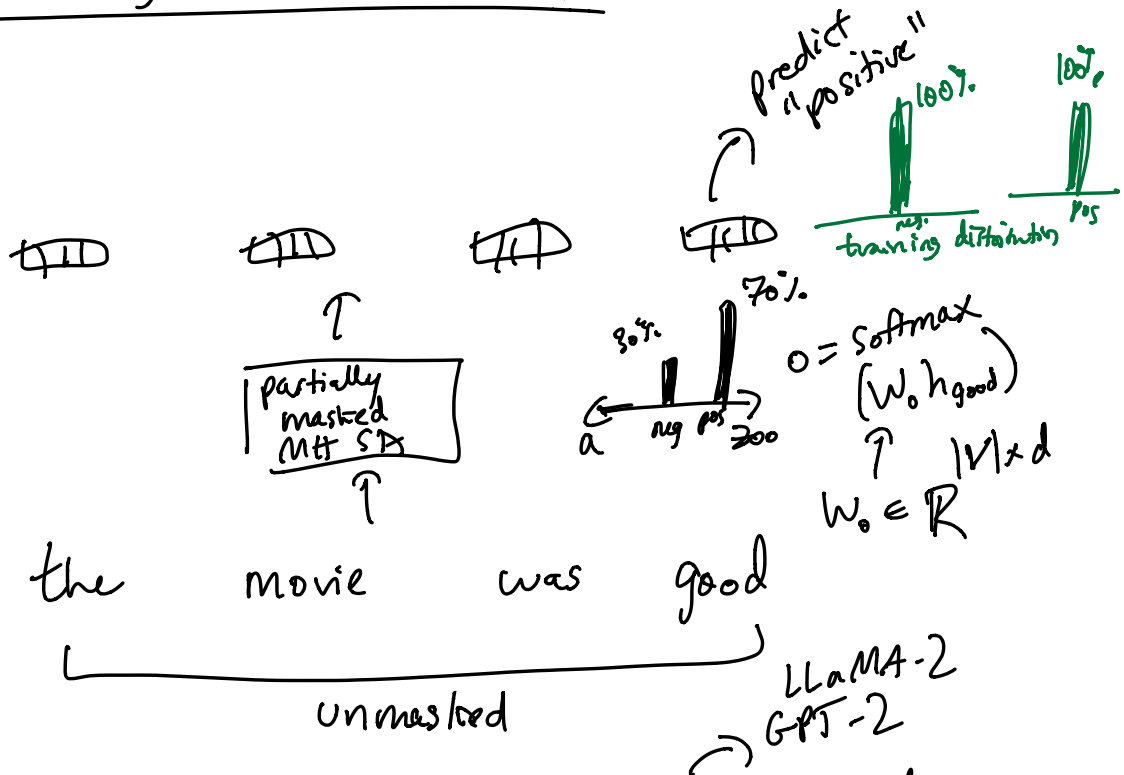 predict
"positive"
100%
100%
neg.
pos
training distribution
70%
30%
a
neg
pos
zoo
o = softmax
(W₀ h good)
|V| × d
W₀ ∈ ℝ
partially
masked
MH SA
the movie was good
unmasked
LLaMA-2
GPT-2